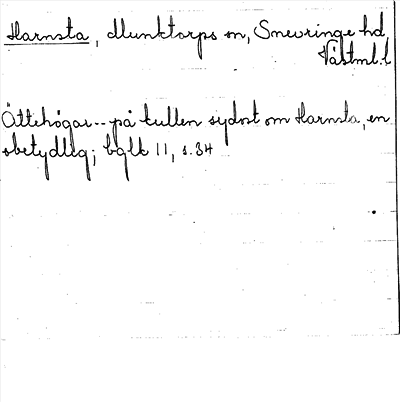 Harnsta, Munktorps sn, Snevringe hd,
Västml. l
Ättehögar -- på kullen sydost om Harnsta, en
obetydlig; bglk 11, s. 34